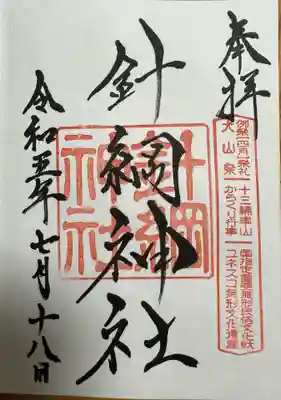 奉拝
例祭(四月)祭礼
犬山祭
十三輌車山
からくり行事
国指定重要無形民俗文化財
ユネスコ無形文化遺産
針綱神社
針綱神社
令和五年七月十八日